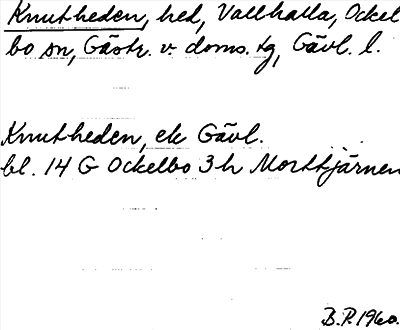 Knutheden, hed, Vallhalla, Ockel
bo sn, Gästr. v. doms. tg, Gävl. l.
Knutheden, ek Gävl.
bl. 14 G Ockelbo 3 h Morttjärnen
B.P. 1960.